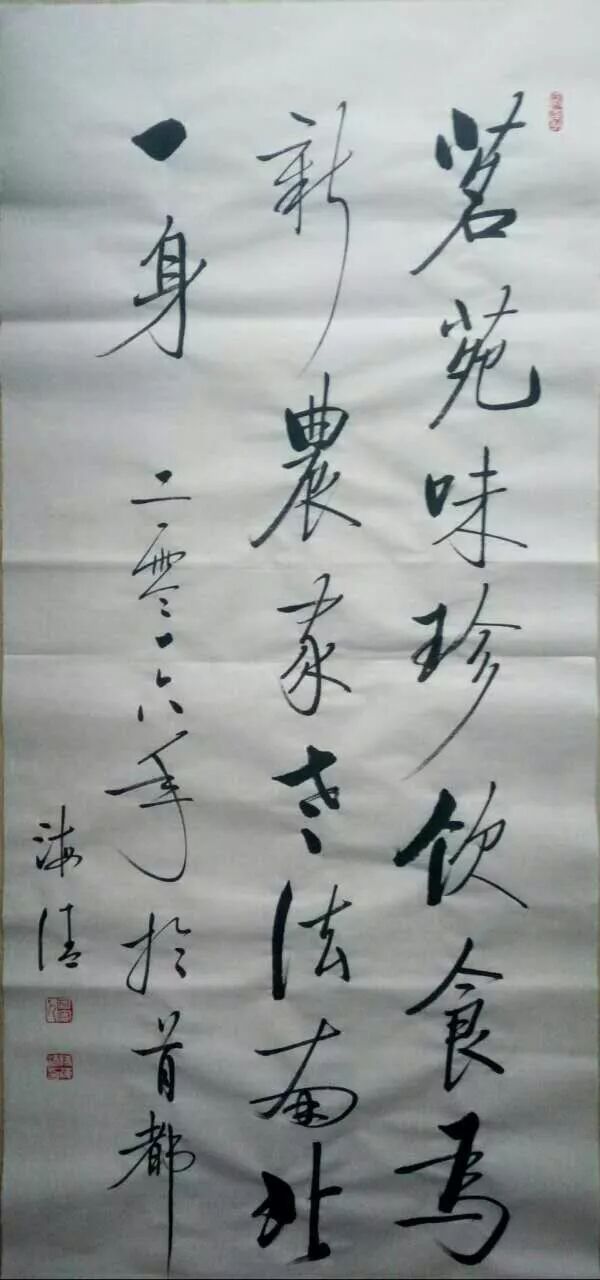 茗苑味珍饮食焉
新農家老法南北
一身 二零一六年於首都
海清